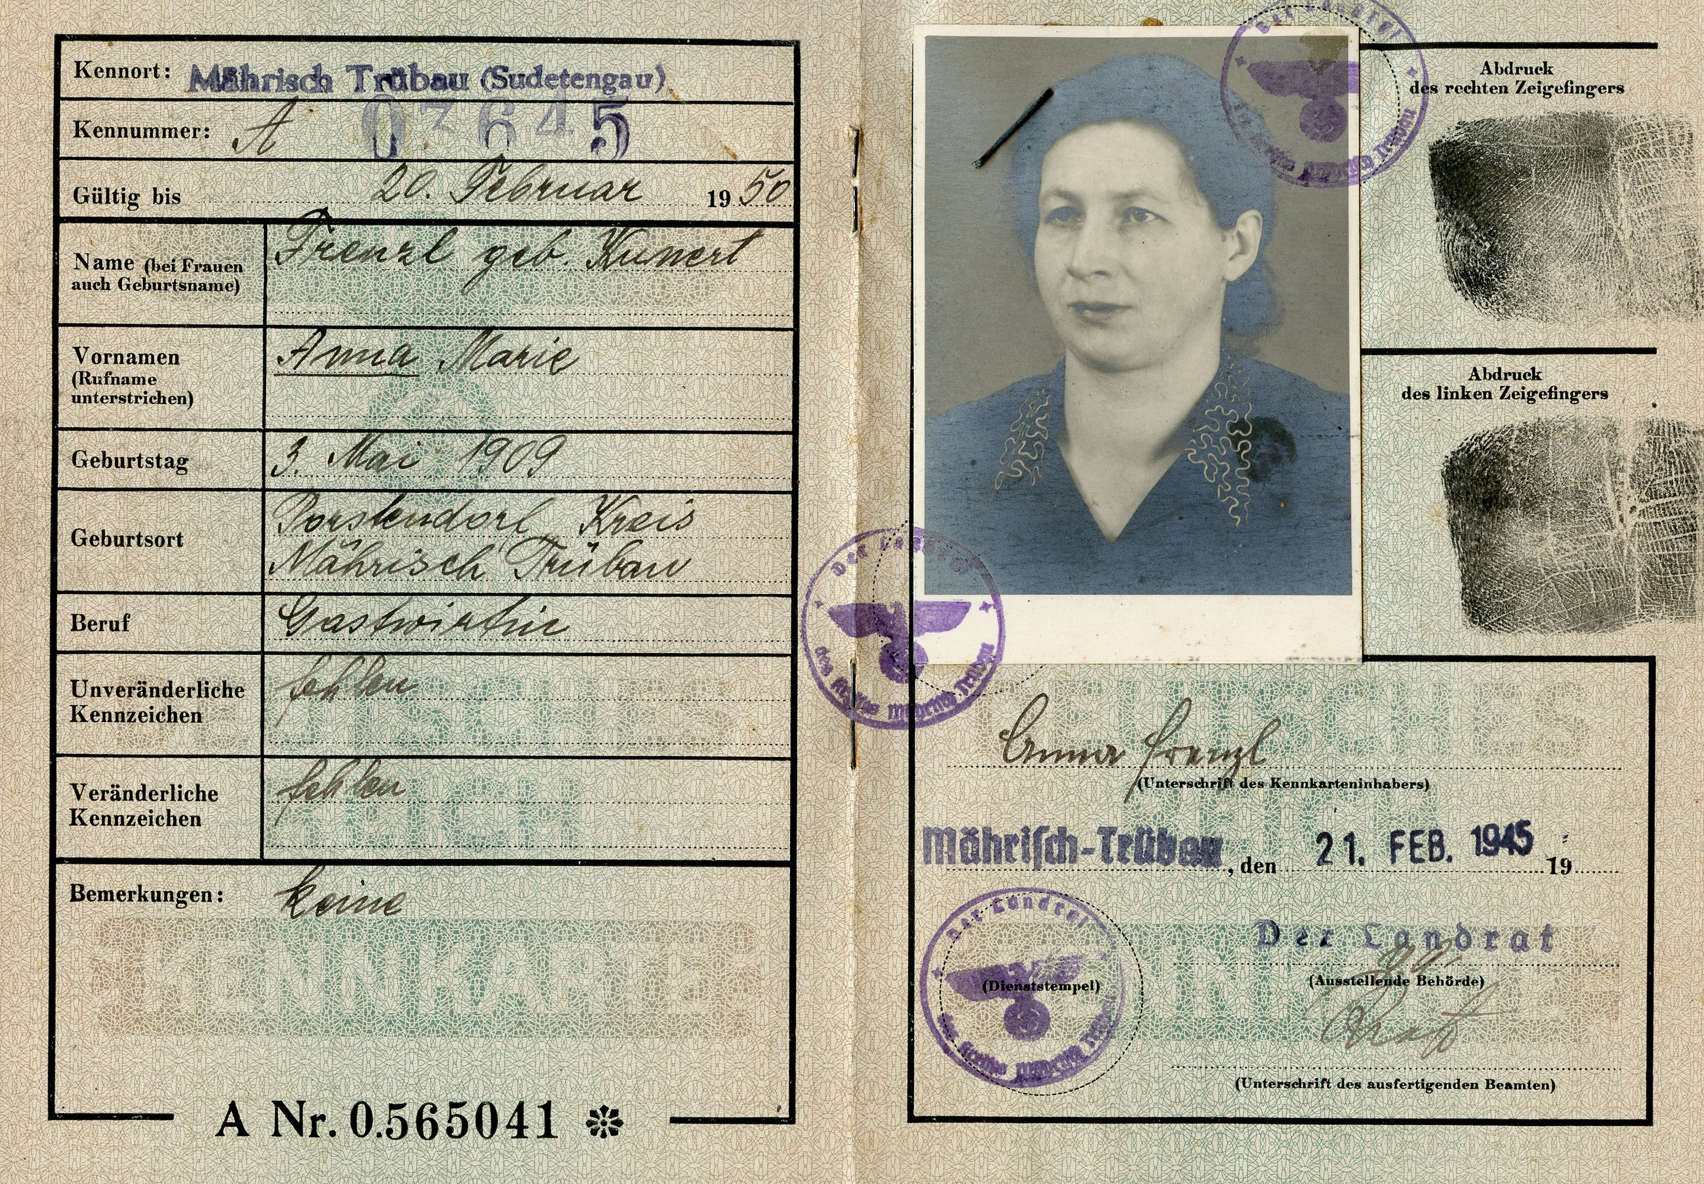 Kennort: Mährisch Trübau (Sudetengau)
Kennummer: A 03645
Gültig bis 20. Februar 1950
Name (bei Frauen
auch Geburtsname)
Frenzl geb. Kunert
Vornamen
(Rufname
unterstrichen)
Anna Marie
Geburtstag 3. Mai 1909
Geburtsort
Porstendorf Kreis
Mährisch Trübau
Beruf Gastwirtin
Unveränderliche
Kennzeichen
fehlen
Veränderliche
Kennzeichen
fehlen
Bemerkungen: keine
DEUTSCHES
REICH
KENNKARTE
A Nr. 0.565041
Der Landrat
des Kreises Mährisch Trübau
Abdruck
des rechten Zeigefingers
Abdruck
des linken Zeigefingers
Der Landrat
des Kreises Mährisch Trübau
Anna Frenzl
(Unterschrift des Kennkarteninhabers)
Mährisch-Trübau, den 21. FEB. 1945 19
Der Landrat
(Ausstellende Behörde)
(Dienststempel)
Der Landrat
des Kreises Mährisch Trübau
(Unterschrift des ausfertigenden Beamten)